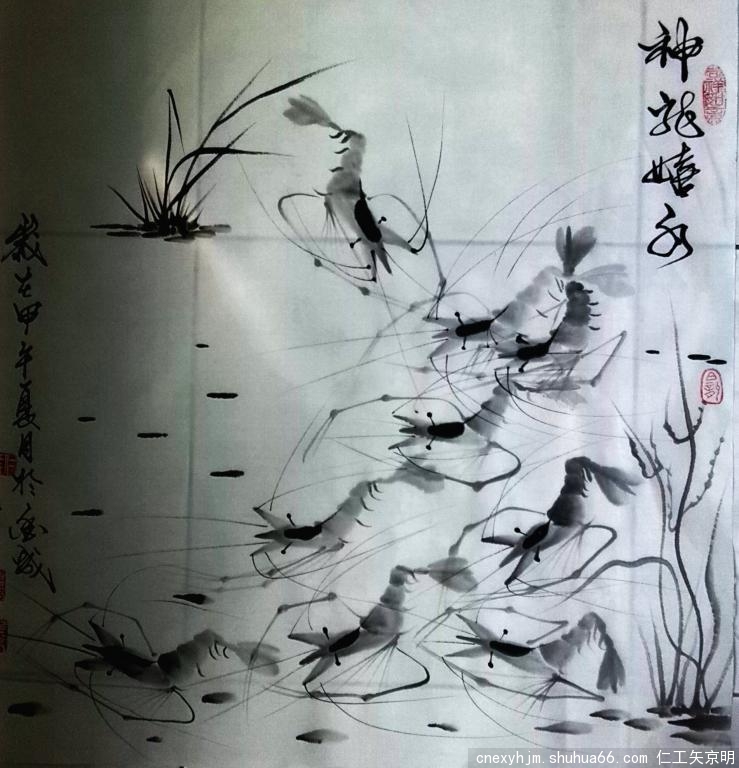 神龍嬉水
岁在甲午夏月於香城
cnexyhjm.shuhua66.com 仁工矢京明